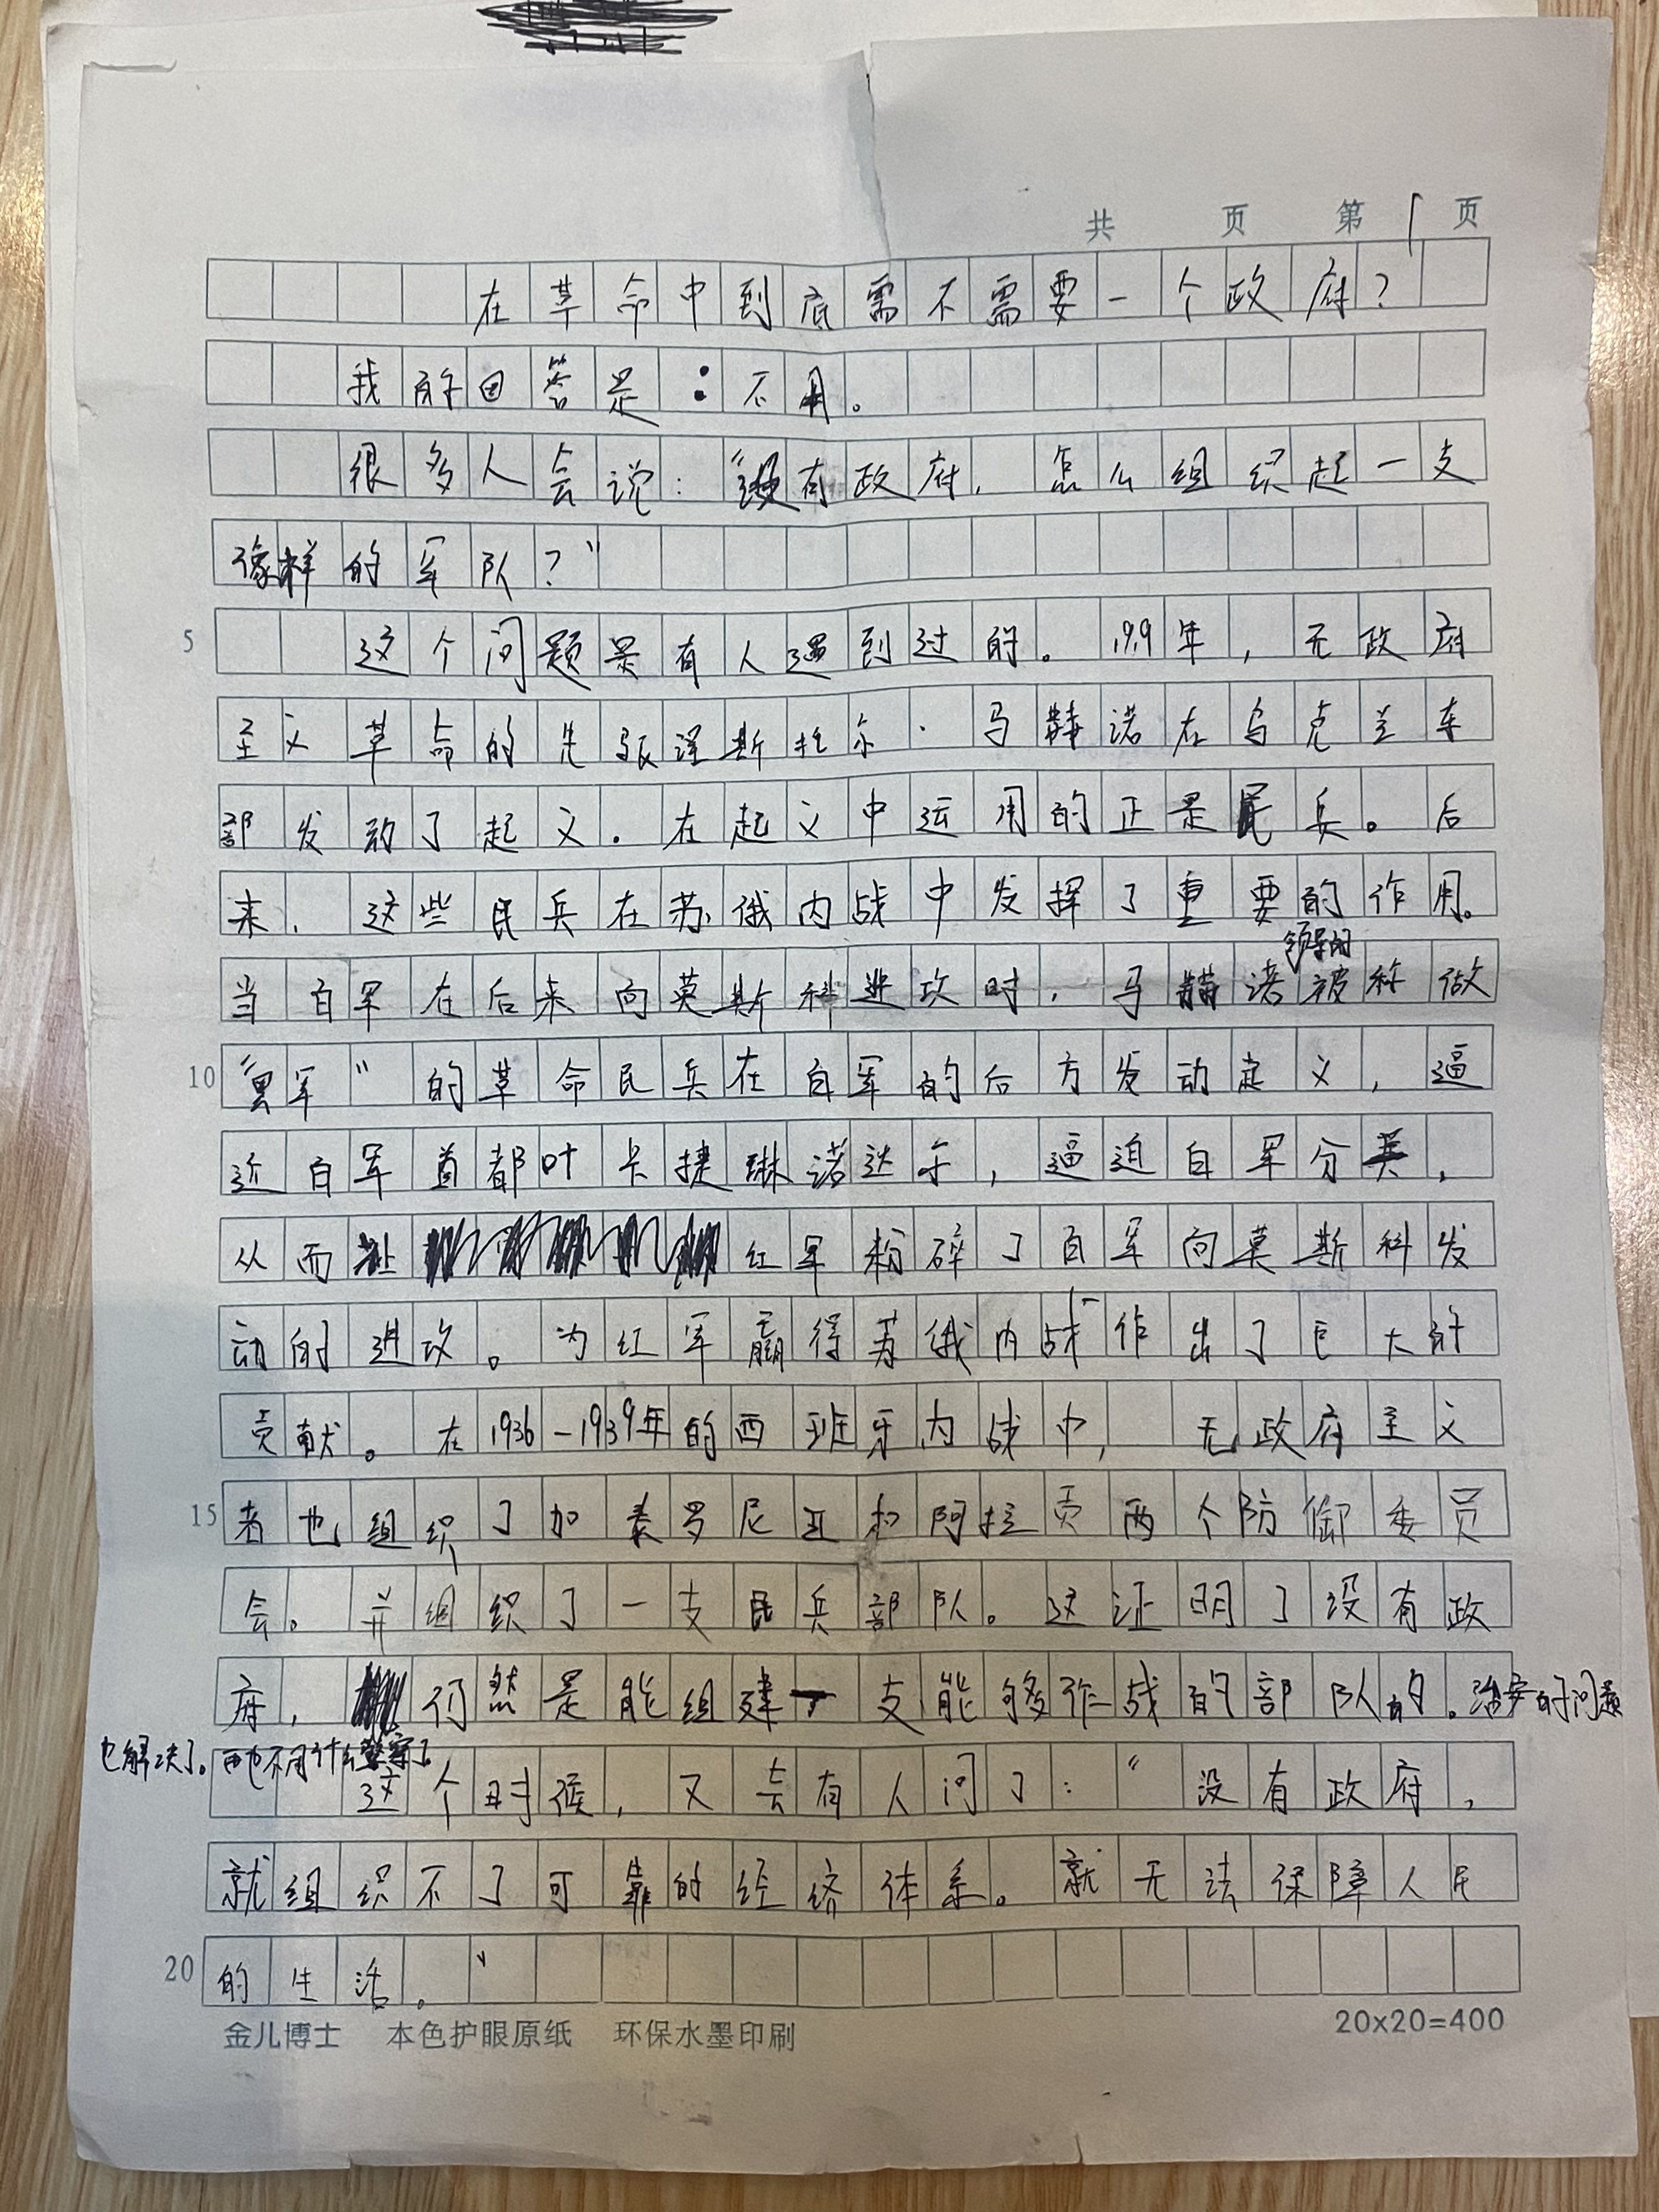 共 页 第 1 页
在革命中到底需不需要一个政府?
我的回答是:不用。
很多人会说:“没有政府,怎么组织起一支
像样的军队?”
5 这个问题是有人遇到过的。1919年,无政府
主义革命的先驱涅斯托尔·马赫诺在乌克兰东
部发动了起义。在起义中运用的正是民兵。后
来,这些民兵在苏俄内战中发挥了重要的作用。
领导的
当白军在后来向莫斯科进攻时,马赫诺被称做
10 “黑军”的革命民兵在白军的后方发动起义,逼
近白军首都叶卡捷琳诺达尔,逼迫白军分兵,
从而让红军粉碎了白军向莫斯科发
动的进攻。为红军赢得苏俄内战作出了巨大的
贡献。在1936-1939年的西班牙内战中,无政府主义
15 者也组织了加泰罗尼亚和阿拉贡两个防御委员
会。并组织了一支民兵部队。这证明了没有政
府,仍然是能组建一支能够作战的部队的。治安的问题
也解决了。再也不用什么警察了
这个时候,又会有人问了:“没有政府,
就组织不了可靠的经济体系。就无法保障人民
20 的生活。”
金儿博士 本色护眼原纸 环保水墨印刷 20x20=400